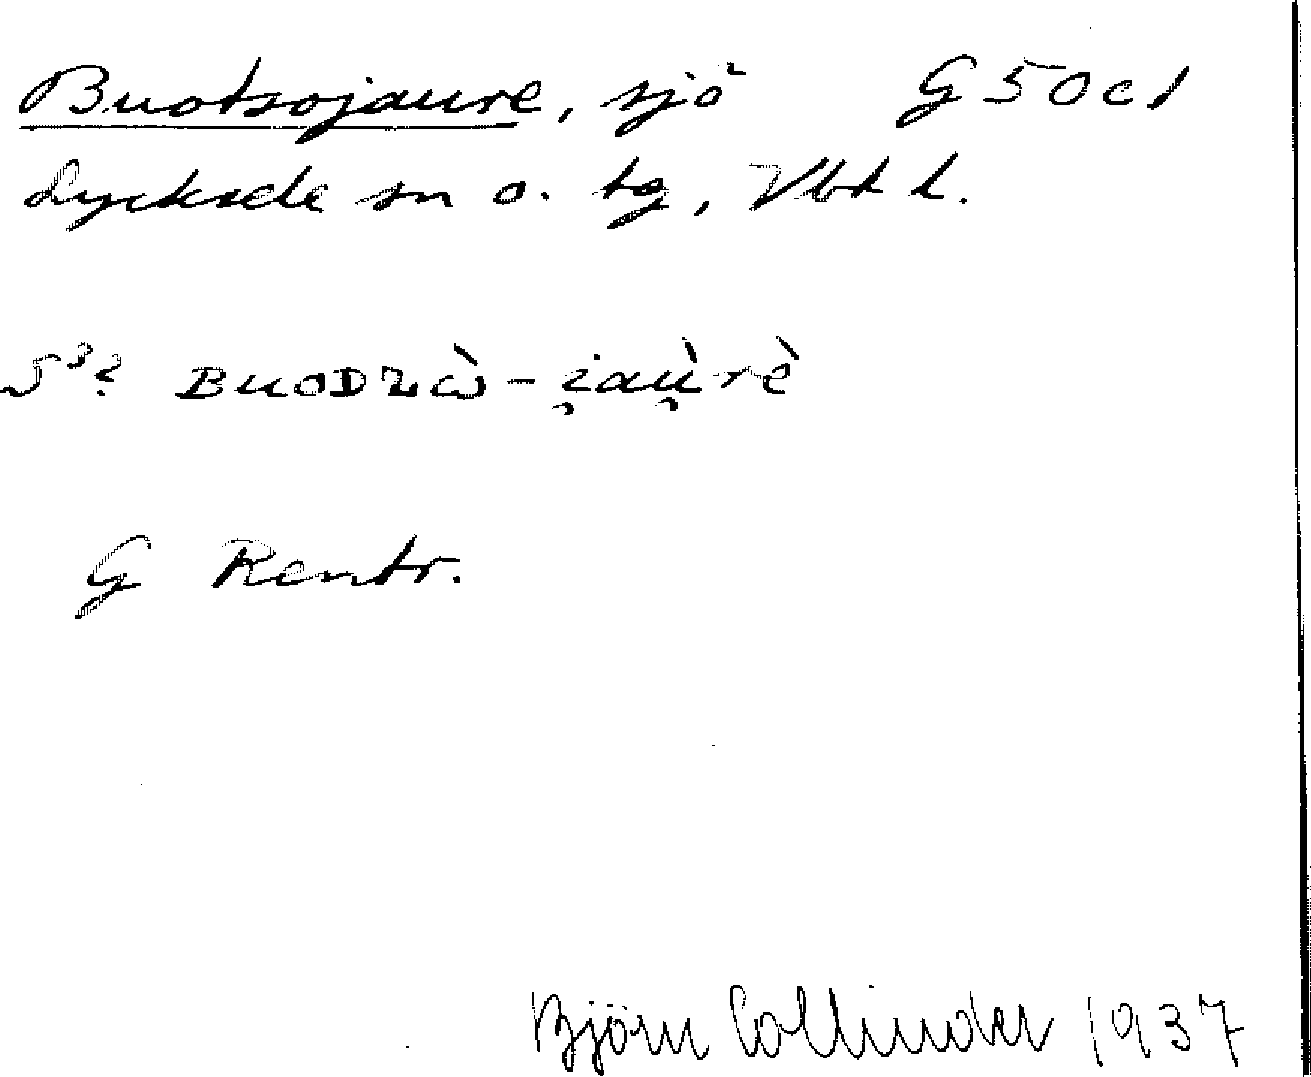 Buotsojaure, sjö G 50 c 1
Lycksele sn o. tg, Vbt l.
G Rentr.
Björn Collinder 1937